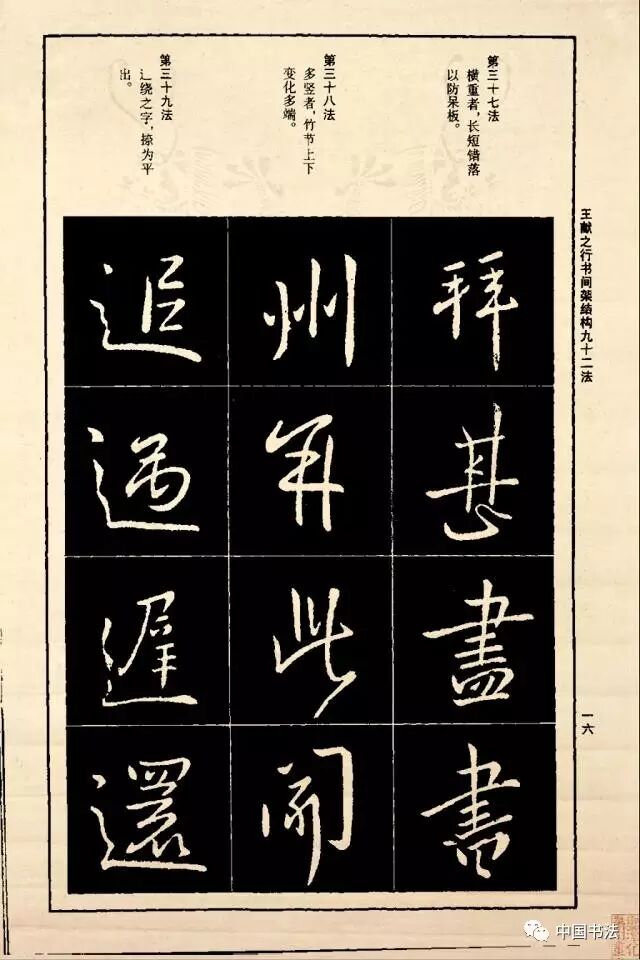 王献之行书间架结构九十二法
一六
第三十七法
横重者，长短错落
以防呆板。
拜
甚
盡
書
第三十八法
多竖者，竹节上下
变化多端。
州
并
此
開
第三十九法
辶绕之字，捺为平
出。
追
遇
遲
還
中国书法